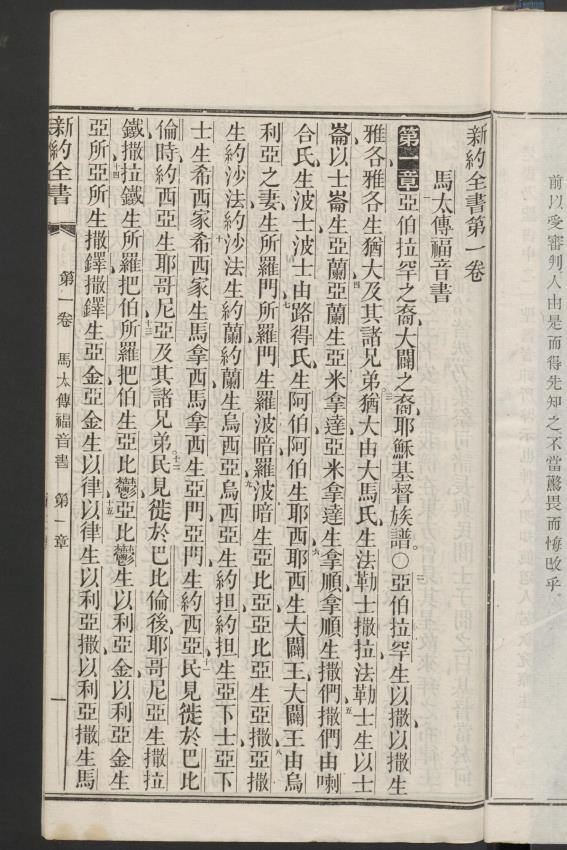 前以受審判人由是而得先知之不當驚畏而悔改乎
新約全書第一卷
馬太傳福音書
第一章 一亞伯拉罕之裔大闢之裔耶穌基督族譜。〇二亞伯拉罕生以撒以撒生
雅各雅各生猶大及其諸兄弟三猶大由大馬氏生法勒士撒拉法勒士生以士
崙以士崙生亞蘭四亞蘭生亞米拿達亞米拿達生拿順拿順生撒們五撒們由喇
合氏生波士波士由路得氏生阿伯阿伯生耶西六耶西生大闢王大闢王由烏
利亞之妻生所羅門七所羅門生羅波暗羅波暗生亞比亞亞比亞生亞撒八亞撒
生約沙法約沙法生約蘭約蘭生烏西亞九烏西亞生約担約担生亞下士亞下
士生希西家十希西家生馬拿西馬拿西生亞門亞門生約西亞十一民見徙於巴比
倫時約西亞生耶哥尼亞及其諸兄弟十二民見徙於巴比倫後耶哥尼亞生撒拉
鐵撒拉鐵生所羅把伯十三所羅把伯生亞比鬱亞比鬱生以利亞金以利亞金生
亞所十四亞所生撒鐸撒鐸生亞金亞金生以律十五以律生以利亞撒以利亞撒生馬
新約全書 第一卷 馬太傳福音書 第一章 一